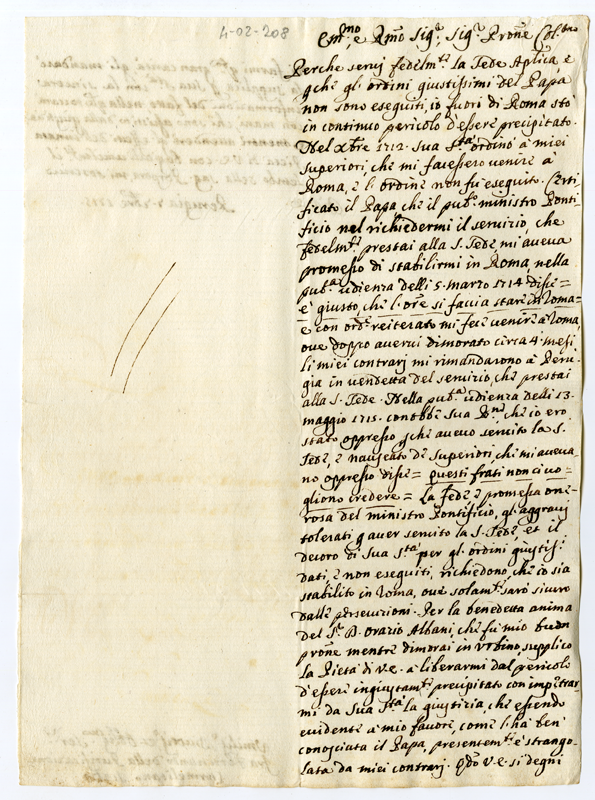 4-02-208
Em.mo e Rmo Sig.r Sig.r Prone Col.mo
Perche servj fedelm.te la Sede Aplica, e
pche gl'ordini giustissimi del Papa
non sono eseguiti, io fuori di Roma stò
in continuo pericolo d'essere precipitato.
Nel xbre 1712. sua S.tà ordinò à miei
superiori, che mi facessero venire à
Roma, e l'ordine non fù eseguito. Certi-
ficato il Papa che il pub.o ministro Ponti-
ficio nel richiedermi il servizio, che
fedelm.te prestai alla S. Sede mi aveva
promesso di stabilirmi in Roma, nella
pub.a udienza delli 5. marzo 1714. disse =
è giusto, che l'ore si faccia stare in Roma =
e con ord.e reiterato mi fece venire à Roma,
ove doppo avervi dimorato circa 4. mesi
li miei contrarj mi rimandarono à Peru-
gia in vendetta del servizio, che prestai
alla S. Sede. Nella pub.a udienza delli 13.
maggio 1715. conobbe sua B.ne che io ero
stato oppresso pche avevo servito la S.
Sede, e nauseato de superiori, che mi aveva-
no oppresso disse = questi frati non ci vo =
gliono credere = La fede, e promessa one-
rosa del ministro Pontificio, gl'aggravj
tolerati p aver servito la S. Sede, et il
decoro di sua S.tà per gl'ordini giustiss.i
dati, e non eseguiti, richiedono, che io sia
stabilito in Roma, ove solam.te sarò sicuro
dalle persecuzioni. Per la benedetta anima
del S.r D. Orazio Albani, che fù mio buon
prone mentre dimorai in Urbino, supplico
la Pietà di v.e. a liberarmi dal pericolo
d'essere ingiustam.te precipitato con impetrar-
mi da sua S.tà la giustizia, che essendo
evidente à mio favore, come l'hà ben
conosciuta il Papa, presentem.te è strango-
lata da miei contrarj. Qdo v.e. si degni